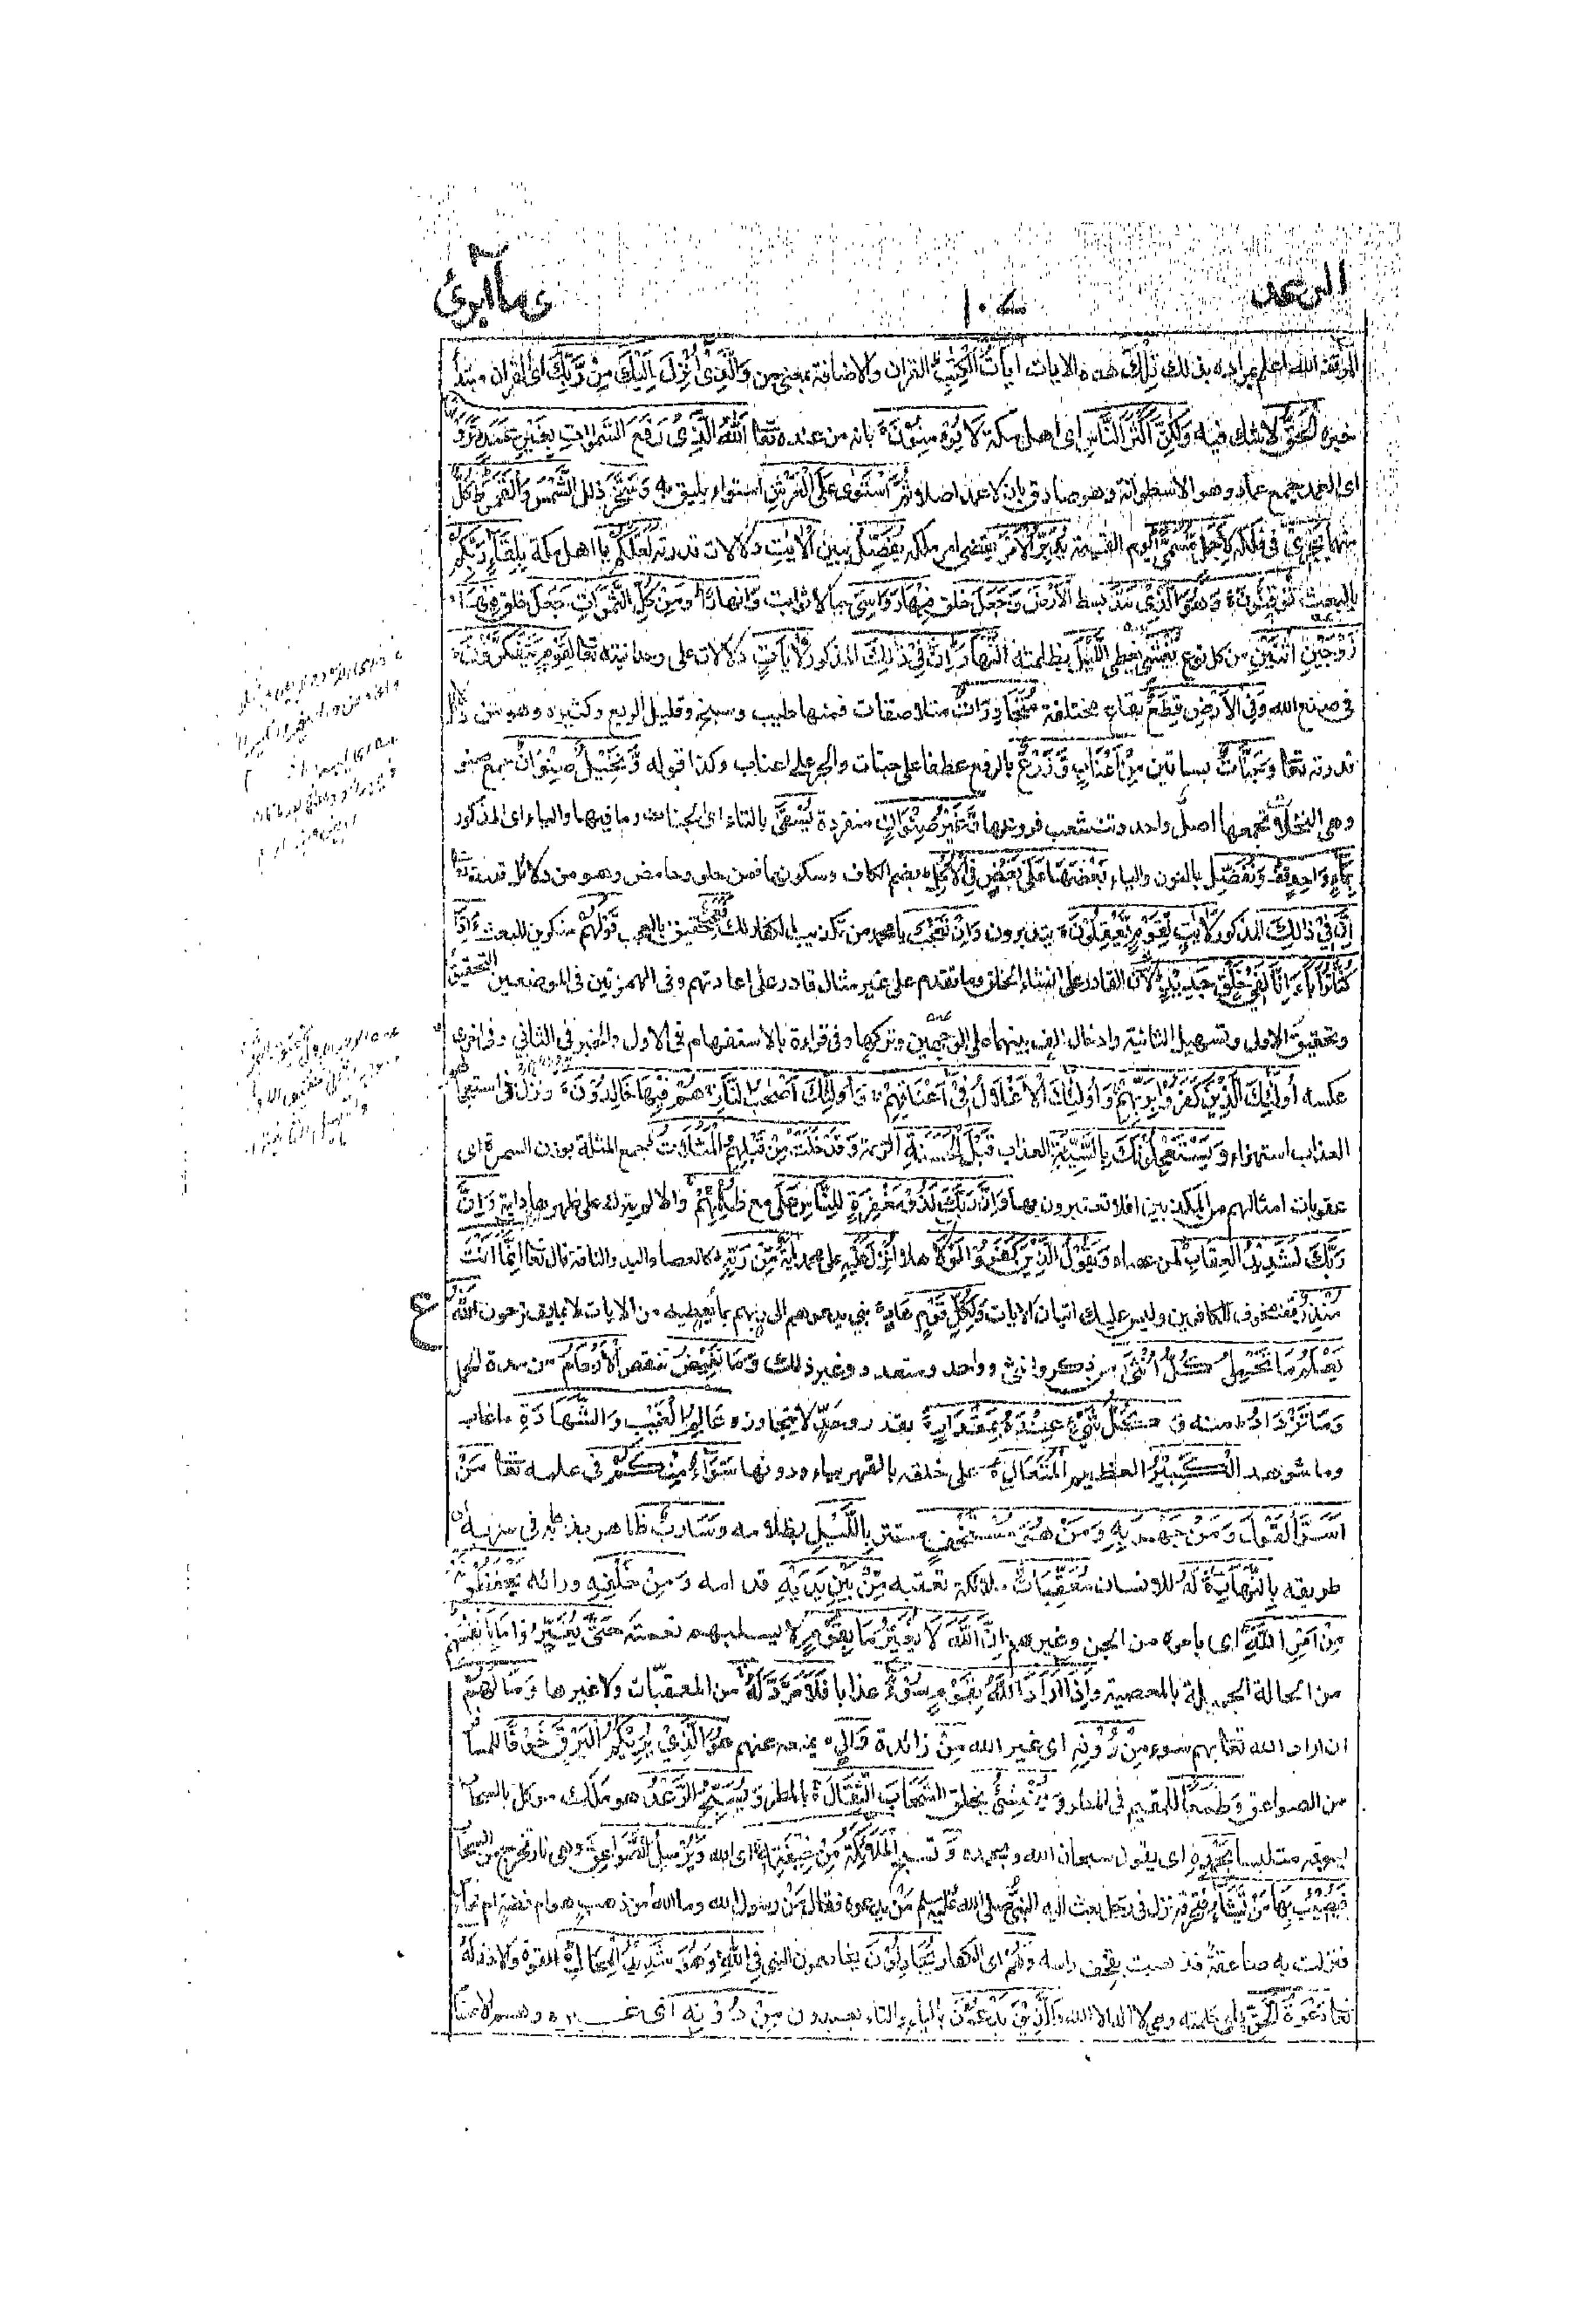 الرعد
وما أبرئ
المر قف الله اعلم بمراده بذلك تلك هذه الايات آيات الكتب القران والاضافة بمعنى من والذي أنزل إليك من ربك اى القران مبتدأ
خبره الحق لا شك فيه ولكن أكثر الناس اى اهل مكة لا يؤمنون بانه من عنده تعا الله الذي رفع السموات بغير عمد ترونها
اى العمد جمع عماد وهو الاسطوانة وهو صادق بان لا عمد اصلا ثم استوى على العرش استواء يليق به وسخر ذلل الشمس والقمر ط كل
منهما يجري فى فلكه لأجل مسمى يوم القيمة يدبر الأمر يقضى امر ملكه يفصل يبين الأيت دلالات قدرته لعلكم يا اهل مكة بلقاء ربكم
بالبعث توقنون وهو الذي مد بسط الأرض وجعل خلق فيها رواسي جبالا ثوابت وانهارا ومن كل الثمرات جعل خلق فيها
زوجين اثنين من كل نوع يغشي يغطى الليل بظلمته النهار إن في ذلك المذكور لأيات دلالات على وحدانيته تعا لقوم يتفكرون
فى صنع الله وفي الأرض قطع بقاع مختلفة متجاورات متلاصقات فمنها طيب وسبخ وقليل الريع وكثيره وهو من دلائل
قدرته تعا وجنات بساتين من أعناب وزرع بالرفع عطفا على جنات والجر على اعناب وكذا قوله ونخيل صنوان جمع صنو
وهى النخلات يجمعها اصل واحد وتتشعب فروعها وغير صنوان منفردة تسقى بالتاء اى الجنات وما فيها والياء اى المذكور
بماء واحد قف ونفضل بالنون والياء بعضها على بعض في الأكل بضم الكاف وسكونها فمن حلو وحامض وهو من دلائل قدرته تعا
إن في ذلك المذكور لأيت لقوم يعقلون يتدبرون وإن تعجب يا محمد من تكذيب الكفار لك فعجب حقيق بالعجب قولهم منكرين للبعث ءاذا
كنا ترابا ءإنا لفي خلق جديد لان القادر على انشاء الخلق وما تقدم على غير مثال قادر على اعادتهم وفى الهمزتين فى الموضعين التحقيق
وتحقيق الاولى وتسهيل الثانية وادخال الف بينهما على الوجهين وتركها وفى قراءة بالاستفهام فى الاول والخبر فى الثانى وفى اخرى
عكسه أولئك الذين كفروا بربهم وأولئك الأغلال في أعناقهم وأولئك أصحب النار هم فيها خالدون ونزل فى استعجالهم
العذاب استهزاء ويستعجلونك بالسيئة العذاب قبل الحسنة الرحمة وقد خلت من قبلهم المثلات جمع المثلة بوزن السمرة اى
عقوبات امثالهم من المكذبين افلا تعتبرون بها وإن ربك لذو مغفرة للناس على مع ظلمهم والا لم يترك على ظهرها دابة وإن
ربك لشديد العقاب لمن عصاه ويقول الذين كفروا لولا هلا أنزل عليه على محمد آية من ربه كالعصا واليد والناقة قال تعا إنما انت
منذر مخوف للكافرين وليس عليك اتيان الايات ولكل قوم هاد نبى يدعوهم الى ربهم بما يعطيه من الايات لا بما يقترحون الله
ع
يعلم ما تحمل كل أنثى من ذكر وانثى وواحد ومتعدد وغير ذلك وما تغيض تنقص الأرحام من مدة الحمل
وما تزداد منه وكل شيء عنده بمقدار بقدر وحد لا يتجاوزه عالم الغيب والشهادة ما غاب
وما شوهد الكبير العظيم المتعالى على خلقه بالقهر بياء ودونها سواء منكم فى علمه تعا من
اسر القول ومن جهر به ومن هو مستخف مستتر بالليل بظلامه وسارب ظاهر بذهابه فى سربه اى
طريقه بالنهار له للانسان معقبات ملائكة تعتقبه من بين يديه قدامه ومن خلفه ورائه يحفظونه
من أمر الله اى بامره من الجن وغيرهم إن الله لا يغير ما بقوم لا يسلبهم نعمته حتى يغيروا ما بانفسهم
من الحالة الجميلة بالمعصية وإذا أراد الله بقوم سوء عذابا فلا مرد له من المعقبات ولا غيرها وما لهم
ان اراد الله تعا بهم سوء من دونه اى غير الله من زائدة وال يمنعه عنهم هو الذي يريكم البرق خوفا للمسافر
من الصواعق وطمعا للمقيم فى المطر وينشئ يخلق السحاب الثقال بالمطر ويسبح الرعد هو ملك موكل بالسحاب
يسوقه متلبسا بحمده اى يقول سبحان الله وبحمده وتسبح الملئكة من خيفته اى الله ويرسل الصواعق وهى نار تخرج من السحاب
فيصيب بها من يشاء فتحرقه نزل فى رجل بعث اليه النبي صلى الله عليه سلم من يدعوه فقال من رسول الله وما الله أمن ذهب هو ام فضة ام نحاس
فنزلت به صاعقة فذهبت بقحف راسه وهم اى الكفار يجادلون يخاصمون النبي في الله وهو شديد المحال القوة والاخذ له
تعا دعوة الحق اى كلمته وهى لا اله الا الله والذين يدعون بالياء والتاء يعبدون من دونه اى غيره وهم الاصنام